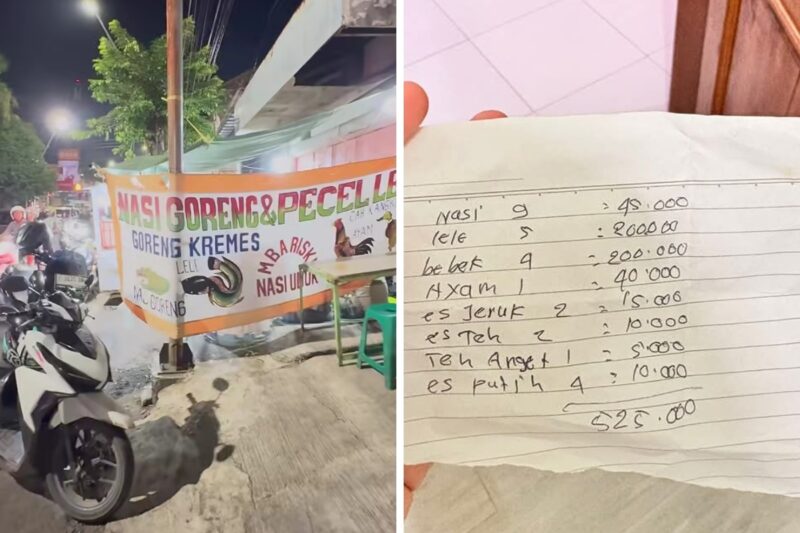 NASI GORENG & PECEL LE
GORENG KREMES
LELI
NASI GORENG
MBA RISKI
NASI UDUK
AYAM
Nasi 9 = 45.000
lele 5 = 200000
bebek 4 = 200.000
Ayam 1 = 40.000
es Jeruk 2 = 15.000
es Teh 2 = 10.000
Teh Anget 1 = 5.000
es putih 4 = 10.000
525.000